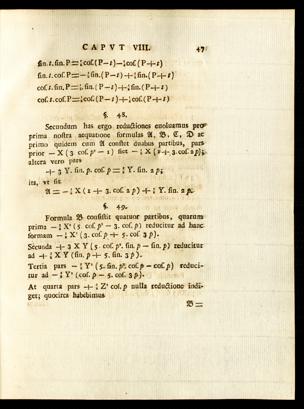 CAPVT VIII. 47
sin. t. sin. P = ½ cos. (P − t) − ½ cos. (P + t)
sin. t. cos. P = − ½ sin. (P − t) + ½ sin. (P + t)
cos. t. sin. P = ½ sin. (P − t) + ½ sin. (P + t)
cos. t. cos. P = ½ cos. (P − t) + ½ cos. (P + t)
§. 48.
Secundum has ergo reductiones euoluamus pro
prima nostra aequatione formulas A, B, C, D ac
primo quidem cum A constet duabus partibus, pars
prior − X (3 cos. p² − 1) fiet − ½ X (1 + 3. cos. 2 p);
altera vero pars
+ 3 Y. sin. p. cos. p = ½ Y. sin. 2 p;
ita, vt sit
A = − ½ X (1 + 3. cos. 2 p) + ½ Y. sin. 2 p.
§. 49.
Formula B consistit quatuor partibus, quarum
prima X² (5. cos. p³ − 3. cos. p) reducitur ad hanc
formam X² (3. cos. p + 5. cos. 3 p).
Secunda + 3 X Y (5. cos. p². sin. p − sin. p) reducitur
ad X Y (sin. p + 5. sin. 3 p).
Tertia pars Y² (5. sin. p². cos. p − cos. p) reduci-
tur ad Y² (cos. p − 5. cos. 3 p).
At quarta pars Z² cos. p nulla reductione indi-
get; quocirca habebimus
B =